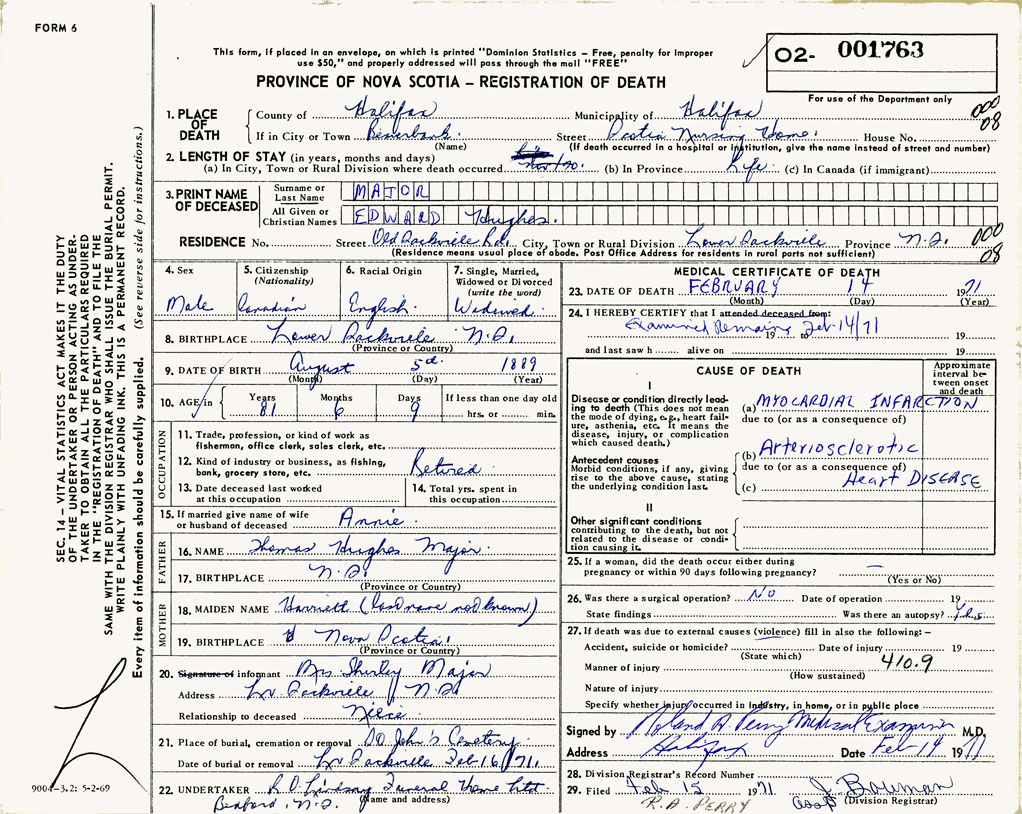 FORM 6
This form, if placed in an envelope, on which is printed "Dominion Statistics – Free, penalty for improper
use $50," and properly addressed will pass through the mail "FREE"
O2- 001763
PROVINCE OF NOVA SCOTIA – REGISTRATION OF DEATH
For use of the Department only
000
08
1. PLACE OF DEATH
County of Halifax Municipality of Halifax
If in City or Town Beaverbank. Street Scotia Nursing Home. House No.
(Name) (If death occurred in a hospital or institution, give the name instead of street and number)
2. LENGTH OF STAY (in years, months and days)
(a) In City, Town or Rural Division where death occurred Nov/70. (b) In Province Life (c) In Canada (if immigrant)
3. PRINT NAME OF DECEASED
Surname or Last Name MAJOR
All Given or Christian Names EDWARD Hughes.
000
08
RESIDENCE No. Street Old Sackville Rd. City, Town or Rural Division Lower Sackville Province N.S.
(Residence means usual place of abode. Post Office Address for residents in rural parts not sufficient)
4. Sex
Male
5. Citizenship
(Nationality)
Canadian
6. Racial Origin
English.
7. Single, Married,
Widowed or Divorced
(write the word)
Widowed.
8. BIRTHPLACE Lower Sackville N.S.
(Province or Country)
9. DATE OF BIRTH August 5th 1889
(Month) (Day) (Year)
10. AGE in Years Months Days If less than one day old
81 6 9 hrs. or min.
OCCUPATION
11. Trade, profession, or kind of work as
fisherman, office clerk, sales clerk, etc.
12. Kind of industry or business, as fishing,
bank, grocery store, etc. Retired
13. Date deceased last worked
at this occupation
14. Total yrs. spent in
this occupation
15. If married give name of wife
or husband of deceased Annie.
FATHER
16. NAME Thomas Hughes Major.
17. BIRTHPLACE N.S.
(Province or Country)
MOTHER
18. MAIDEN NAME Harriett (last name not known)
19. BIRTHPLACE Nova Scotia.
(Province or Country)
20. Signature of informant Mrs Shirley Major
Address Lr. Sackville N.S.
Relationship to deceased Niece.
21. Place of burial, cremation or removal St John's Cemetery.
Date of burial or removal Lr Sackville Feb 16/71.
22. UNDERTAKER R.O. Lindsay Funeral Home Ltd.
(Name and address)
Bedford, N.S.
MEDICAL CERTIFICATE OF DEATH
23. DATE OF DEATH FEBRUARY 14 1971
(Month) (Day) (Year)
24. I HEREBY CERTIFY that I attended deceased from:
Examined Remains Feb 14/71
19 to 19
and last saw h alive on 19
CAUSE OF DEATH
Approximate
interval be-
tween onset
and death
I
Disease or condition directly lead-
ing to death (This does not mean
the mode of dying, e.g., heart fail-
ure, asthenia, etc. It means the
disease, injury, or complication
which caused death.)
(a) MYOCARDIAL INFARCTION
due to (or as a consequence of)
Antecedent causes
Morbid conditions, if any, giving
rise to the above cause, stating
the underlying condition last.
(b) Arteriosclerotic
due to (or as a consequence of)
(c) Heart DISEASE
II
Other significant conditions
contributing to the death, but not
related to the disease or condi-
tion causing it.
25. If a woman, did the death occur either during
pregnancy or within 90 days following pregnancy? –
(Yes or No)
26. Was there a surgical operation? NO Date of operation 19
State findings Was there an autopsy? Yes
27. If death was due to external causes (violence) fill in also the following: –
Accident, suicide or homicide? Date of injury 19
(State which)
410.9
Manner of injury
(How sustained)
Nature of injury
Specify whether injury occurred in industry, in home, or in public place
Signed by Roland A. Perry Medical Examiner M.D.
Address Halifax Date Feb 14 1971
28. Division Registrar's Record Number
29. Filed Feb 15 1971 J. Bowman
(Division Registrar)
R.A. PERRY
SEC. 14 – VITAL STATISTICS ACT MAKES IT THE DUTY
OF THE UNDERTAKER OR PERSON ACTING AS UNDER-
TAKER TO OBTAIN ALL THE PARTICULARS REQUIRED
IN THE "REGISTRATION OF DEATH" AND TO FILE THE
SAME WITH THE DIVISION REGISTRAR WHO SHALL ISSUE THE BURIAL PERMIT.
WRITE PLAINLY WITH UNFADING INK. THIS IS A PERMANENT RECORD.
Every item of information should be carefully supplied. (See reverse side for instructions.)
9004–3.2: 5-2-69